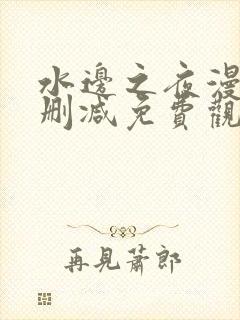 水邊之夜漫
删減免費觀
再見蕭郎